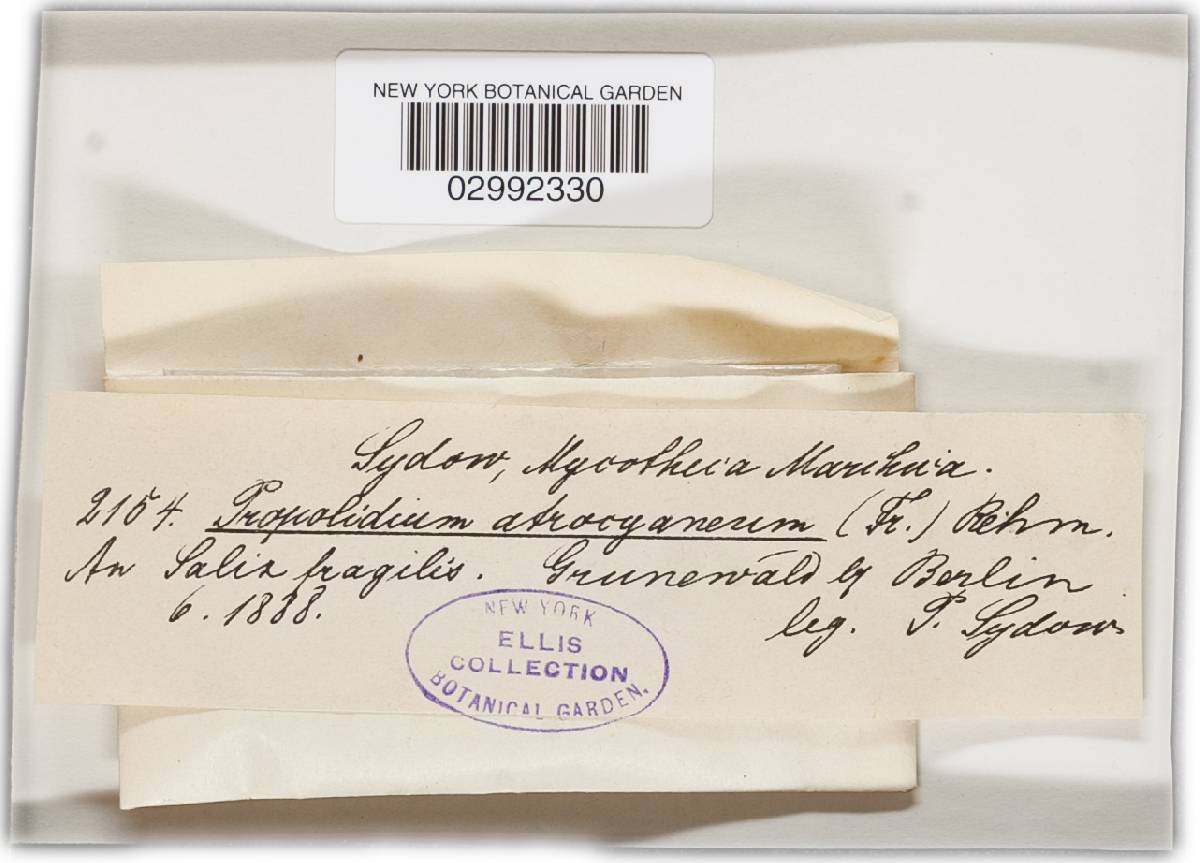 NEW YORK BOTANICAL GARDEN
02992330
Sydow, Mycotheca Marchica.
2154. Propolidium atrocyaneum (Fr.) Rehm.
An Salix fragilis. Grunewald b/ Berlin
6. 1888. leg. P. Sydow
NEW YORK
ELLIS
COLLECTION
BOTANICAL GARDEN.